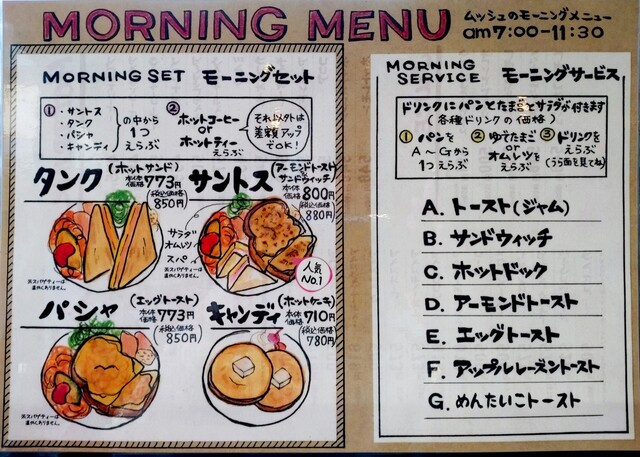 MORNING MENU
ムッシュのモーニングメニュー
am7:00-11:30
MORNING SET モーニングセット
①
・サントス
・タンク
・パシャ
・キャンディ
の中から
1つ
えらぶ
②
ホットコーヒー
or
ホットティー
えらぶ
それ以外は
差額アップ
でOK!
タンク(ホットサンド)
本体価格773円
(税込価格)
850円
サントス(アーモンドトースト サンドウィッチ)
本体価格800円
(税込価格)
880円
サラダ
オムレツ
スパ
※スパゲティーは
温かくありません。
人気
No.1
パシャ(エッグトースト)
本体価格773円
(税込価格)
850円
キャンディ(ホットケーキ)
本体価格710円
(税込価格)
780円
※スパゲティーは
温かくありません。
MORNING
SERVICE モーニングサービス
ドリンクにパンとたまごとサラダが付きます
(各種ドリンクの価格)
①パンを
A〜Gから
1つえらぶ
②ゆでたまご
or
オムレツを
えらぶ
③ドリンクを
えらぶ
(うら面を見てね)
A. トースト(ジャム)
B. サンドウィッチ
C. ホットドック
D. アーモンドトースト
E. エッグトースト
F. アップルレーズントースト
G. めんたいこトースト